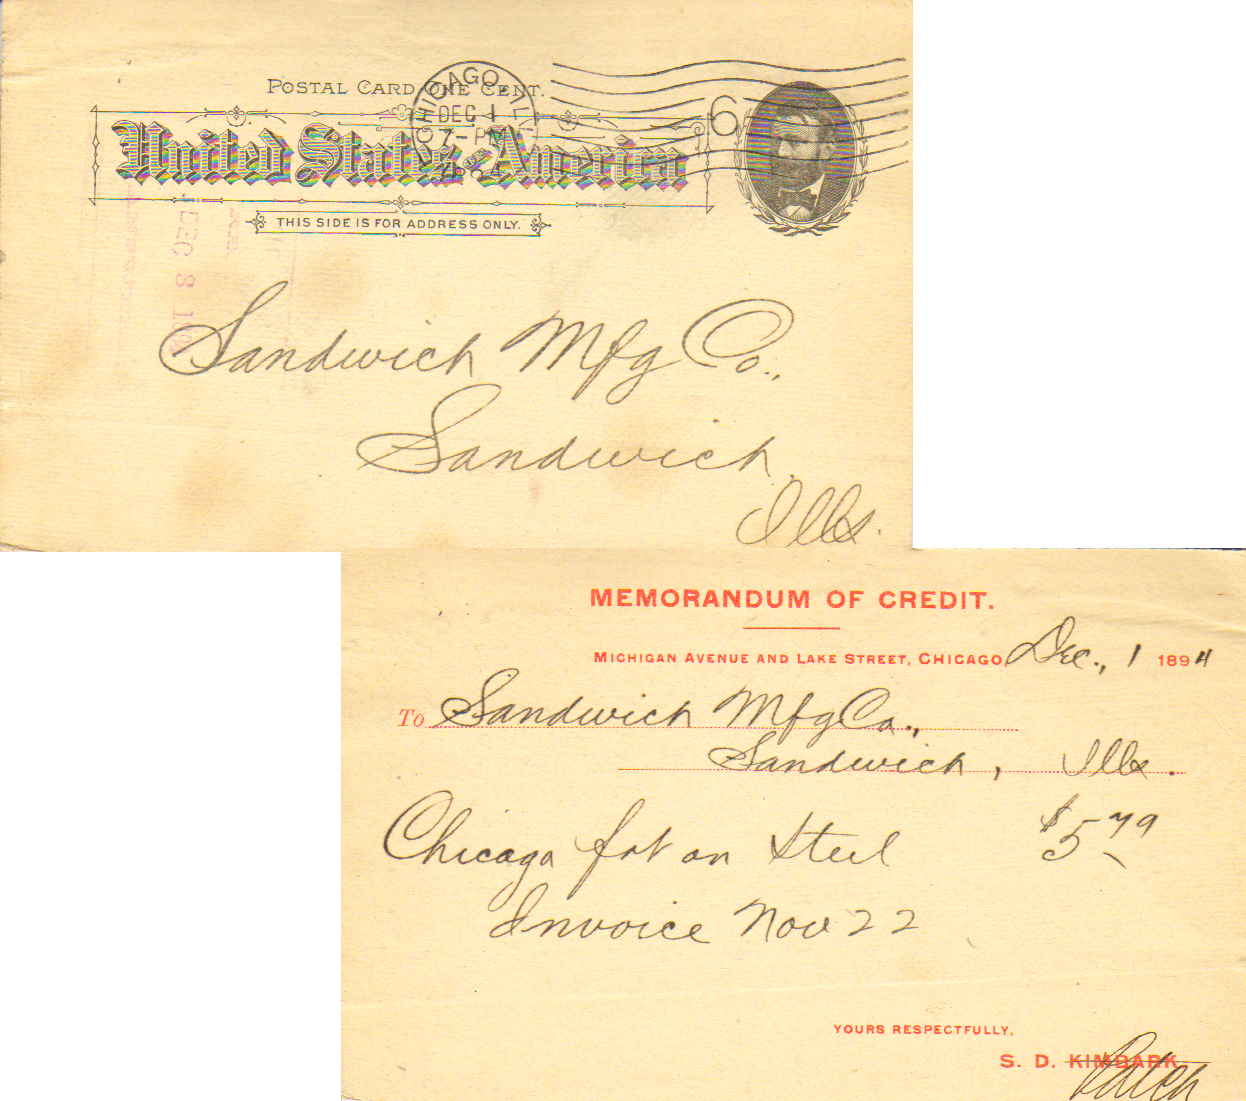 POSTAL CARD ONE CENT.
CHICAGO, ILL.
DEC 1
7-PM
6
United States of America
THIS SIDE IS FOR ADDRESS ONLY.
DEC 3
Sandwich Mfg Co.,
Sandwich,
Ills.
MEMORANDUM OF CREDIT.
MICHIGAN AVENUE AND LAKE STREET, CHICAGO Dec., 1 1894
To Sandwich Mfg Co.,
Sandwich, Ills.
Chicago frt on Steel $5 79
Invoice Nov 22
YOURS RESPECTFULLY,
S. D. KIMBARK.